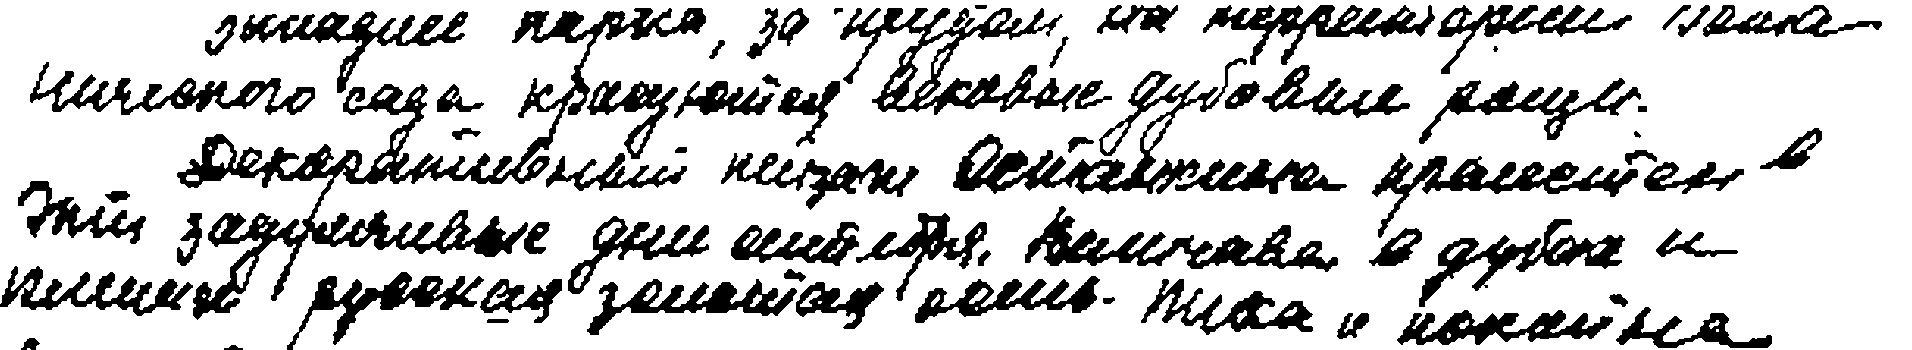 западнее парка, за прудом, на территории бота-
нического сада красуются вековые дубовые рощи.
Декоративный пейзаж Останкина прелестен в
эти задумчивые дни октября. Величава в дубах и
кленах русская золотая осень. Тиха и покойна